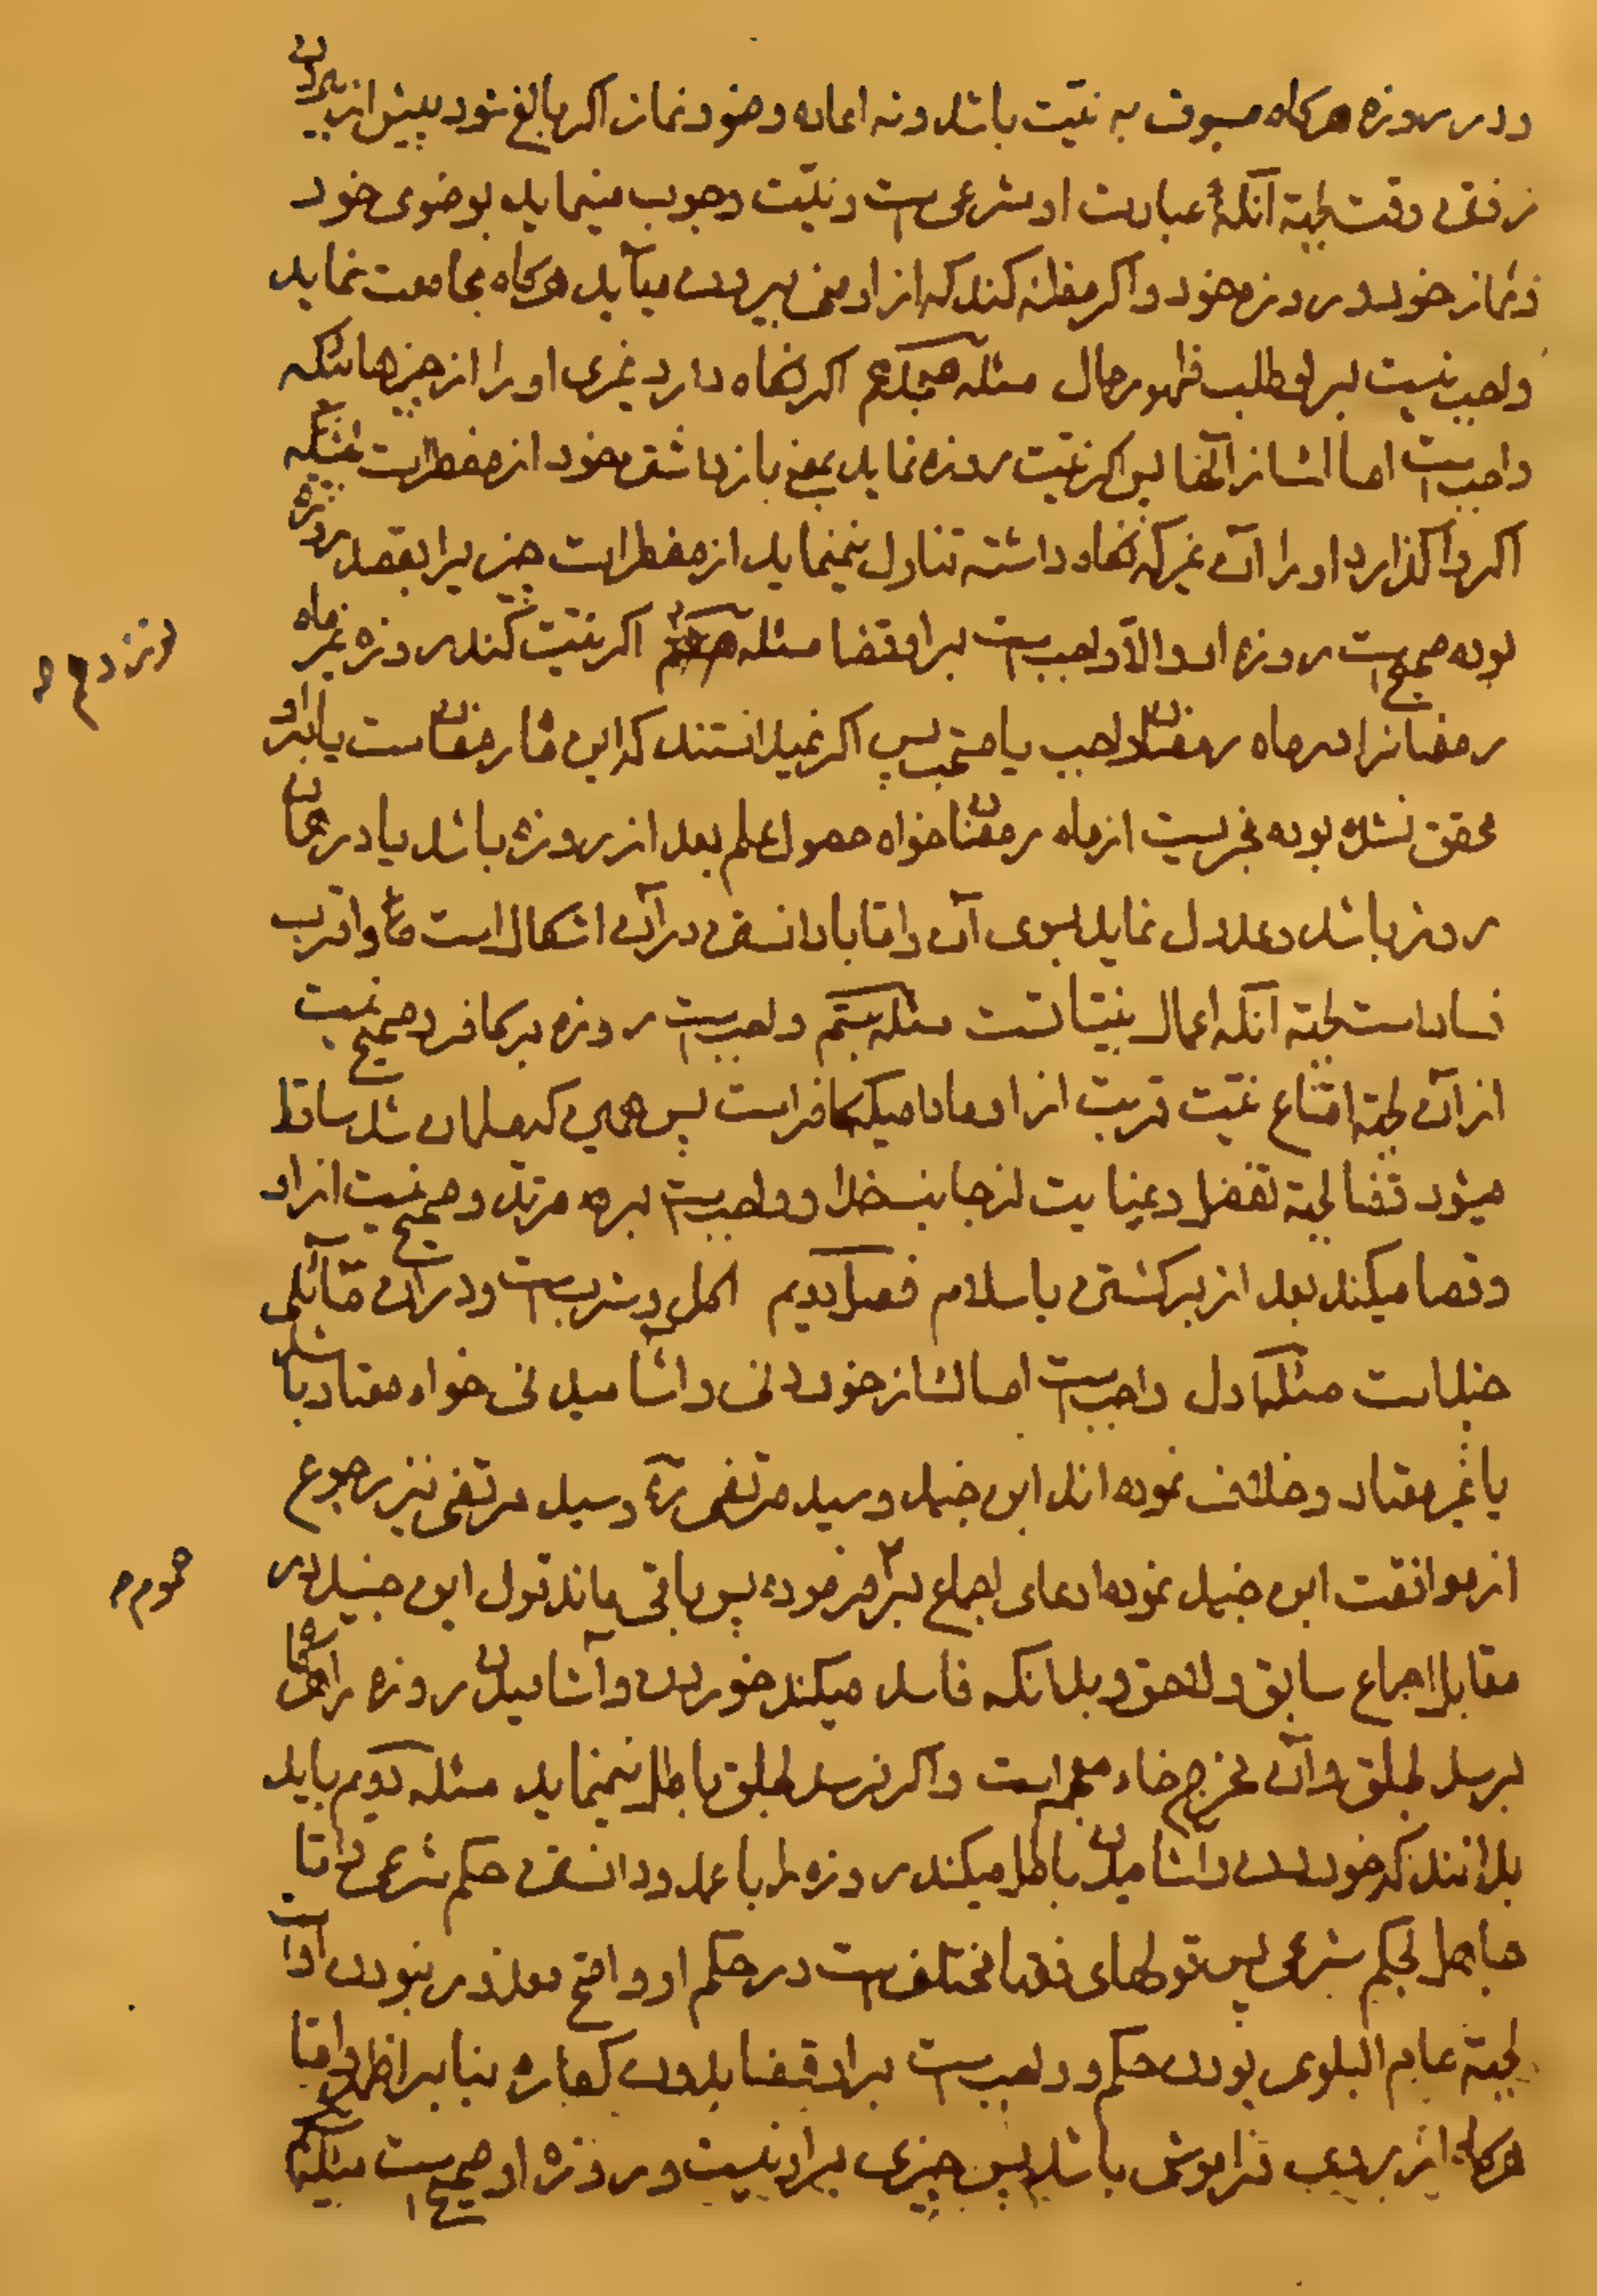 و در روزه هرگاه مسبوق به نیّت باشد و نه اعاده وضو و نماز اگر بالغ شود پیش از بیرون
رفتن وقت لجهة آنکه عبادت او شرعی است و نیّت وجوب مینماید بوضوی خود
و نماز خود و روزه خود و اگر مظنه کند که از او منی بیرون میآید هرگاه مجامعت نماید
واجب نیست بر او طلب ظهور حال مسئله هیجدهم اگر نگاه دارد غیری او را از چیزهائیکه
واجب است امساک از آنها پس اگر نیّت روزه نماید بمعنی بازداشتن خود از مفطرات بحیثیتیکه
اگر واگذارد او را آن غیر که نگاه داشته تناول نمینماید از مفطرات چیزیرا بقصد روزه
بوده صحیح است روزه او و الا واجب است بر او قضا مسئله اگر نیّت کند روزه غیر ماه
نوزدهم
رمضانرا در ماه رمضان واجب یا مستحب پس اگر نمیدانستند که این ماه رمضان است یا بر او
محقق نشده بوده مجزیست از ماه رمضان خواه حصول علم بعد از روزه باشد یا در همان
روز باشد و عدول نماید بسوی آن و اما با دانستن در آن اشکال است و اقرب
فساد است لجهة آنکه اعمال بنیّات است مسئله بیستم واجب است روزه بر کافر و صحیح نیست
از آن لجهة امتناع نیّت قربت از او مادامیکه کافر است پس همین که مسلمان شد ساقط
میشود قضا لجهة تفضل و عنایت از جانب خدا و واجب است بر مرتد و صحیح نیست از او
و قضا میکند بعد از برگشتن باسلام فصل دویم اکل و شرب است و در آن مسائلی
چند است مسئله اول واجب است امساک از خوردنی و آشامیدنی خواه معتاد باشد
یا غیر معتاد و خلاف نموده اند ابن جنید و سید مرتضی ره و سید مرتضی نیز رجوع
از موافقت ابن جنید نموده ادعای اجماع بر آن فرموده پس باقی ماند قول ابن جنید در
مقابل اجماع سابق و لاحق و بدانکه فاسد میکند خوردن و آشامیدن روزه را هرگاه
برسد بحلق و آن مخرج خاء معجمه است و اگر نرسد بحلق باطل نمینماید مسئله دویم باید
بدانند که خوردن و آشامیدن باطل میکند روزه را با عمد و دانستن حکم شرعی و اما
جاهل بحکم شرعی پس قولهای فقها مختلف است در حکم او و اصح معذور نبودن او است
لجهة عام البلوی بودن حکم و واجب است بر او قضا بدون کفاره بنا بر اظهر و اما
هرگاه از روی فراموشی باشد پس چیزی بر او نیست و روزه او صحیح است مسئله